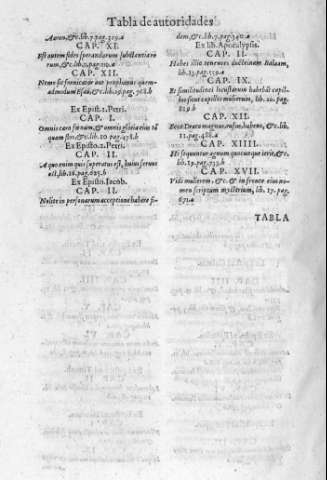 Tabla de autoridades
Aaron, &c. lib. 7. pag. 329. a
CAP. XI.
Est autem fides sperandarum substantia rerum, &c. lib.
CAP. XII.
Nemo sit fornicator aut prophanus quemadmodum Esau, &c. lib. 19. pag.
Ex Epist. 1. Petri.
CAP. I.
Omnis caro foenum, & omnis gloria eius tã
quam flos, &c. lib. 10. pag. 425. b
Ex Episto. 2. Petri.
CAP. II.
A quo enim quis superatus est, huius seruus
est, lib. 16. pag. 625. b
Ex Episto. Iacob.
CAP. II.
Nolite in personarum acceptione habere fi-
dem, &c. lib. 7. pag. 340. a
Ex lib. Apocalypsis.
CAP. II.
Habes illic tenentes doctrinam Balaam,
lib. 13. pag. 550. a
CAP. IX.
Et similitudines locustarum habebãt capillos sicut capillos mulierum, lib. 20. pag.
CAP. XII.
Ecce Draco magnus, rufus, habens, &c. lib.
11. pag.
CAP. XIIII.
Hi sequuntur agnum quocunque ierit, &c.
lib. 19. pag.
CAP. XVII.
Vidi mulierem, &c. & in fronte eius nomen scriptum mysterium, lib. 17. pag.
671. a
TABLA